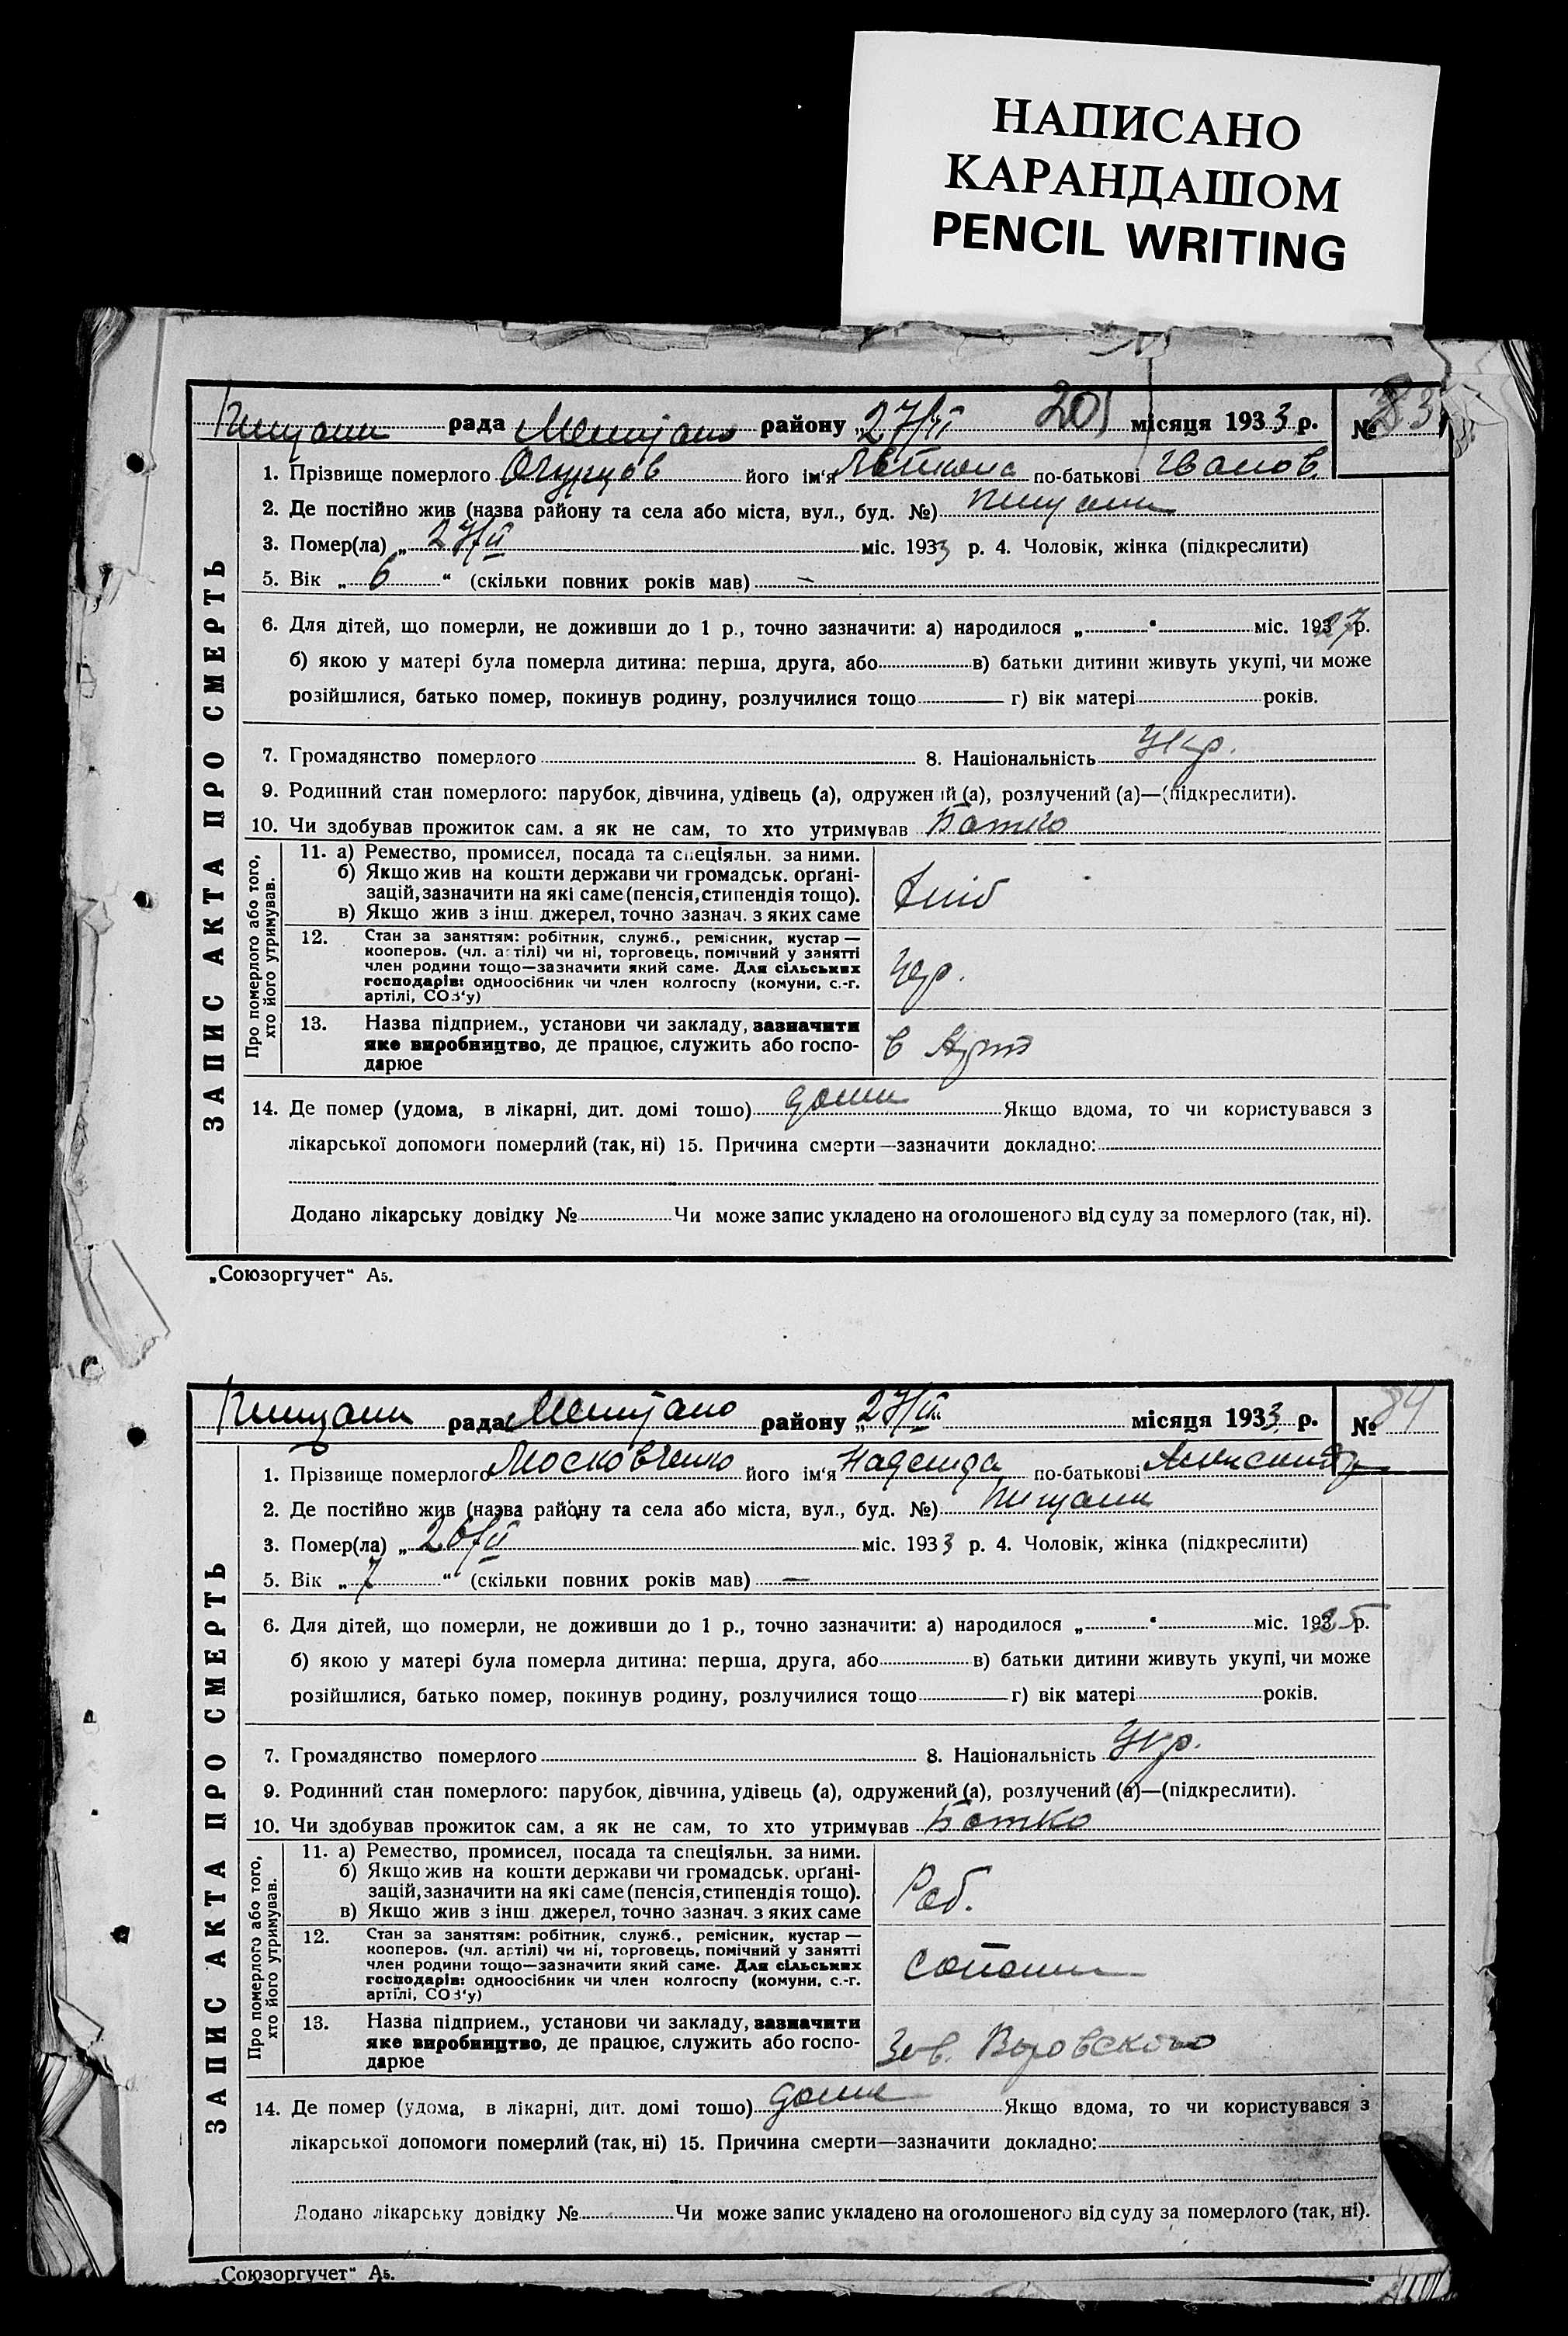 НАПИСАНО
КАРАНДАШОМ
PENCIL WRITING
201
Пищани рада района „27/II місяця 1933 р. № 83
1. Прізвище померлого Огурцов його ім'я по-батькові Іванов.
2. Де постійно жив (назва району та села або міста, вул., буд. №) Пищани
3. Помер(ла) „ 27/II міс. 1933 р. 4. Чоловік, жінка (підкреслити)
5. Вік „ 6 “ (скільки повних років мав) —
6. Для дітей, що померли, не доживши до 1 р., точно зазначити: а) народилося „ “ міс. 1927 р.
б) якою у матері була померла дитина: перша, друга, або в) батьки дитини живуть укупі, чи може
розійшлися, батько помер, покинув родину, розлучилися тощо г) вік матері років.
7. Громадянство померлого 8. Національність Укр.
9. Родинний стан померлого: парубок, дівчина, удівець (а), одружений (а), розлучений (а)—(підкреслити).
10. Чи здобував прожиток сам, а як не сам, то хто утримував Батко
ЗАПИС АКТА ПРО СМЕРТЬ
Про померлого або того,
хто його утримував.
11. а) Ремество, промисел, посада та спеціяльн. за ними.
б) Якщо жив на кошти держави чи громадськ. орґані-
зацій, зазначити на які саме (пенсія, стипендія тощо).
в) Якщо жив з інш. джерел, точно зазнач. з яких саме
12. Стан за заняттям: робітник, служб., ремісник, кустар —
кооперов. (чл. артілі) чи ні, торговець, помічний у занятті
член родини тощо—зазначити який саме. Для сільських
господарів: одноосібник чи член колгоспу (комуни, с.-г.
артілі, СОЗ'у)
13. Назва підприєм., установи чи закладу, зазначити
яке виробництво, де працює, служить або госпо-
дарює
14. Де помер (удома, в лікарні, дит. домі тошо) доми Якщо вдома, то чи користувався з
лікарської допомоги померлий (так, ні) 15. Причина смерти—зазначити докладно:
Додано лікарську довідку № Чи може запис укладено на оголошеного від суду за померлого (так, ні).
„Союзоргучет“ А5.
Пищани рада району „27/II“ місяця 1933 р. № 84
1. Прізвище померлого Московченко його ім'я Надежда по-батькові Александр
2. Де постійно жив (назва району та села або міста, вул., буд. №) Пищани
3. Помер(ла) „ 26/II міс. 1933 р. 4. Чоловік, жінка (підкреслити)
5. Вік „ 7 “ (скільки повних років мав) —
6. Для дітей, що померли, не доживши до 1 р., точно зазначити: а) народилося „ “ міс. 1925 р.
б) якою у матері була померла дитина: перша, друга, або в) батьки дитини живуть укупі, чи може
розійшлися, батько помер, покинув родину, розлучилися тощо г) вік матері років.
7. Громадянство померлого 8. Національність Укр.
9. Родинний стан померлого: парубок, дівчина, удівець (а), одружений (а), розлучений (а)—(підкреслити).
10. Чи здобував прожиток сам, а як не сам, то хто утримував Батко
ЗАПИС АКТА ПРО СМЕРТЬ
Про померлого або того,
хто його утримував.
11. а) Ремество, промисел, посада та спеціяльн. за ними.
б) Якщо жив на кошти держави чи громадськ. орґані-
зацій, зазначити на які саме (пенсія, стипендія тощо).
в) Якщо жив з інш. джерел, точно зазнач. з яких саме
Раб.
12. Стан за заняттям: робітник, служб., ремісник, кустар —
кооперов. (чл. артілі) чи ні, торговець, помічний у занятті
член родини тощо—зазначити який саме. Для сільських
господарів: одноосібник чи член колгоспу (комуни, с.-г.
артілі, СОЗ'у)
13. Назва підприєм., установи чи закладу, зазначити
яке виробництво, де працює, служить або госпо-
дарює
Зав. Воровского
14. Де помер (удома, в лікарні, дит. домі тошо) доми Якщо вдома, то чи користувався з
лікарської допомоги померлий (так, ні) 15. Причина смерти—зазначити докладно:
Додано лікарську довідку № Чи може запис укладено на оголошеного від суду за померлого (так, ні).
„Союзоргучет“ А5.